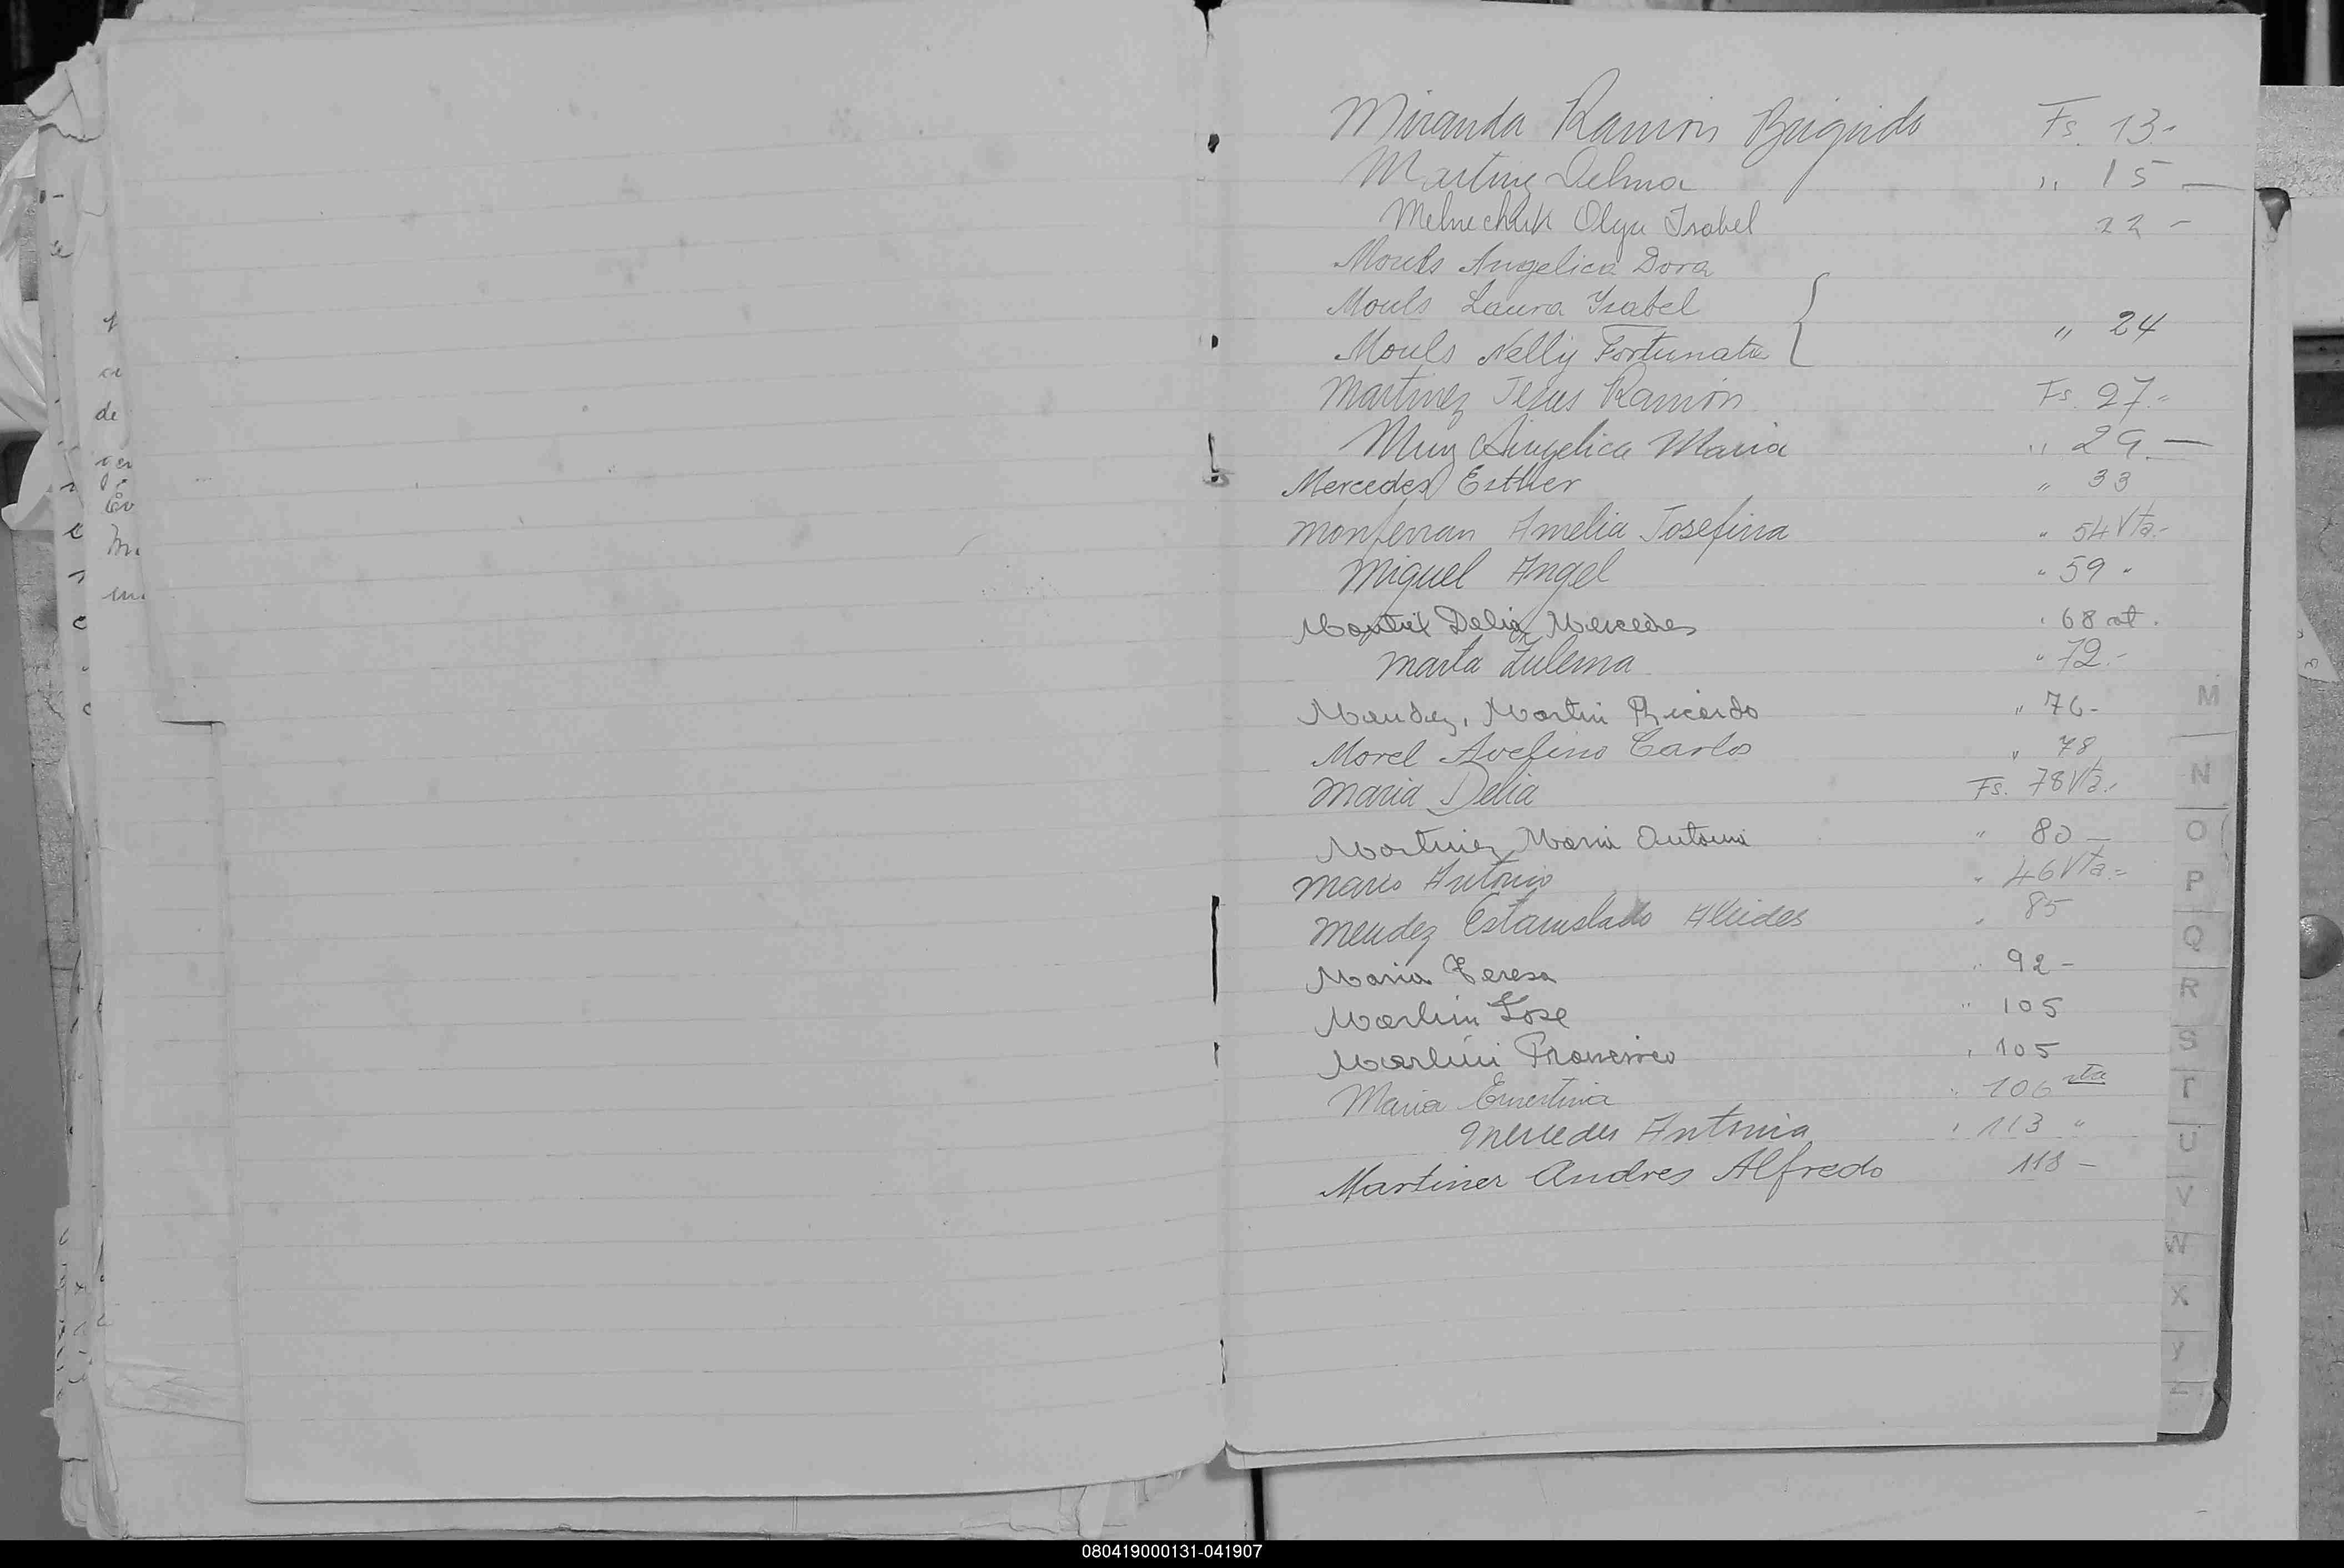 Miranda Ramón Brigido Fs. 13.-
Martinez Delma " 15 —
Melnechuk Olga Isabel 22 -
Mouls Angelica Dora
Mouls Laura Isabel
Mouls Nelly Fortunata " 24
Martinez Jesus Ramón Fs. 27.-
Angelica Maria " 29.—
Mercedes Esther " 33
Monferran Amelia Josefina " 54 Vta.-
Miguel Angel " 59 "
Montiel Delia Mercedes " 68
Marta Zulema " 72.-
Mendez, Martin Ricardo " 76-
Morel Avelino Carlos " 78
Maria Delia Fs. 78 Vta.-
Martinez Maria Antonia " 80 —
Mario Antonio " 46 Vta.-
Mendez Estanislado Alcides " 85
Maria Teresa " 92-
Martin Jose " 105
Martini Francisco " 105
Maria Ernestina " 106 vta
Mercedes Antonia " 113 "
Martinez Andres Alfredo 118 -
M
N
O
P
Q
R
S
T
U
V
W
X
Y
Z
080419000131-041907